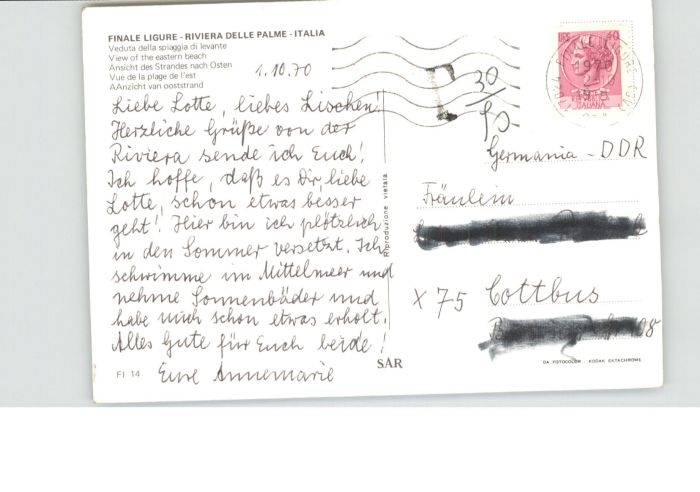 FINALE LIGURE - RIVIERA DELLE PALME - ITALIA
Veduta della spiaggia di levante
View of the eastern beach
Ansicht des Strandes nach Osten
Vue de la plage de l'est
AAnzicht van ooststrand
1.10.70
Liebe Lotte, liebes Lischen!
Herzliche Grüße von der
Riviera sende ich Euch!
Ich hoffe, daß es Dir, liebe
Lotte, schon etwas besser
geht! Hier bin ich plötzlich
in den Sommer versetzt. Ich
schwimme im Mittelmeer und
nehme Sonnenbäder und
habe mich schon etwas erholt.
Alles Gute für Euch beide!
Eure Annemarie
FI 14
SAR
Riproduzione vietata
T 30
ITALIANA
Germania - DDR
Fräulein
X 75 Cottbus
DA FOTOCOLOR KODAK EKTACHROME